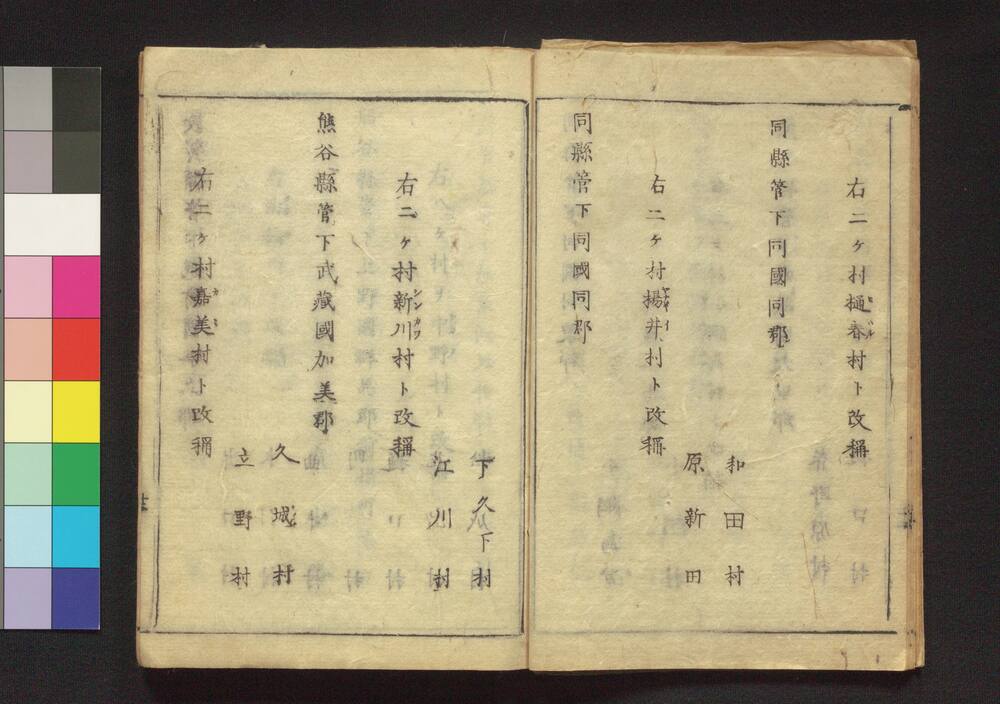 右二ヶ村樋春村ト改稱
同縣管下同國同郡
和田村
原新田
右二ヶ村揚井村ト改稱
同縣管下同國同郡
下久下村
江川村
右二ヶ村新川村ト改稱
熊谷縣管下武藏國加美郡
久城村
立野村
右二ヶ村嘉美村ト改稱